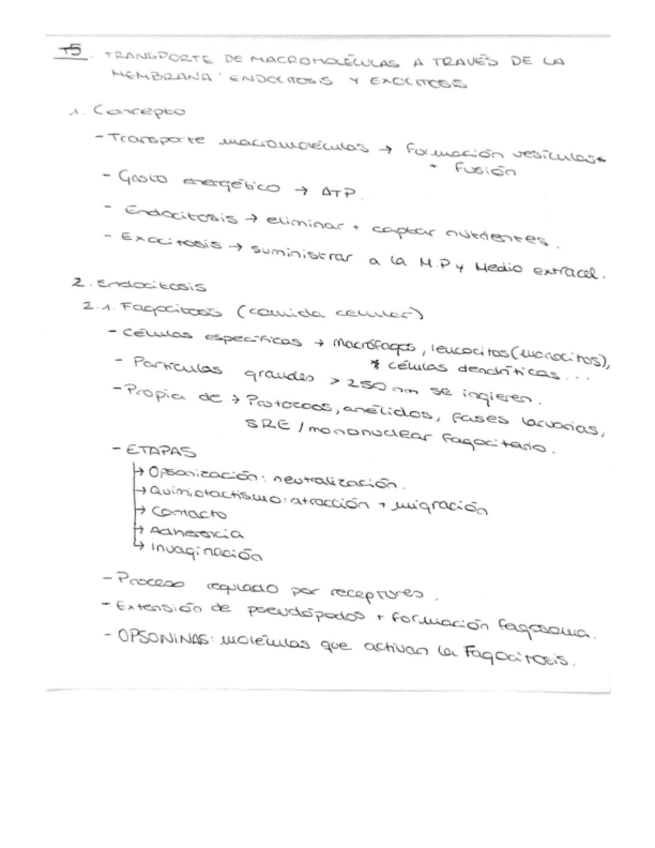 T5. TRANSPORTE DE MACROMOLÉCULAS A TRAVÉS DE LA
MEMBRANA: ENDOCITOSIS Y EXOCITOSIS
1. Concepto
- Transporte macromoléculas → Formación vesículas
+ Fusión
- Gasto energético → ATP.
- Endocitosis → eliminar + captar nutrientes.
- Exocitosis → suministrar a la M.P y Medio extracel.
2. Endocitosis
2.1. Fagocitosis (comida celular)
- Células específicas → Macrófagos, leucocitos (monocitos),
* células dendríticas...
- Partículas grandes > 250 nm se ingieren.
- Propia de → Protozoos, anélidos, fases larvarias,
SRE / mononuclear fagocitario.
- ETAPAS
→ Opsonización: neutralización.
→ Quimiotactismo: atracción + migración
→ Contacto
→ Adherencia
→ Invaginación
- Proceso regulado por receptores.
- Extensión de pseudópodos + formación fagosoma.
- OPSONINAS: moléculas que activan la Fagocitosis.